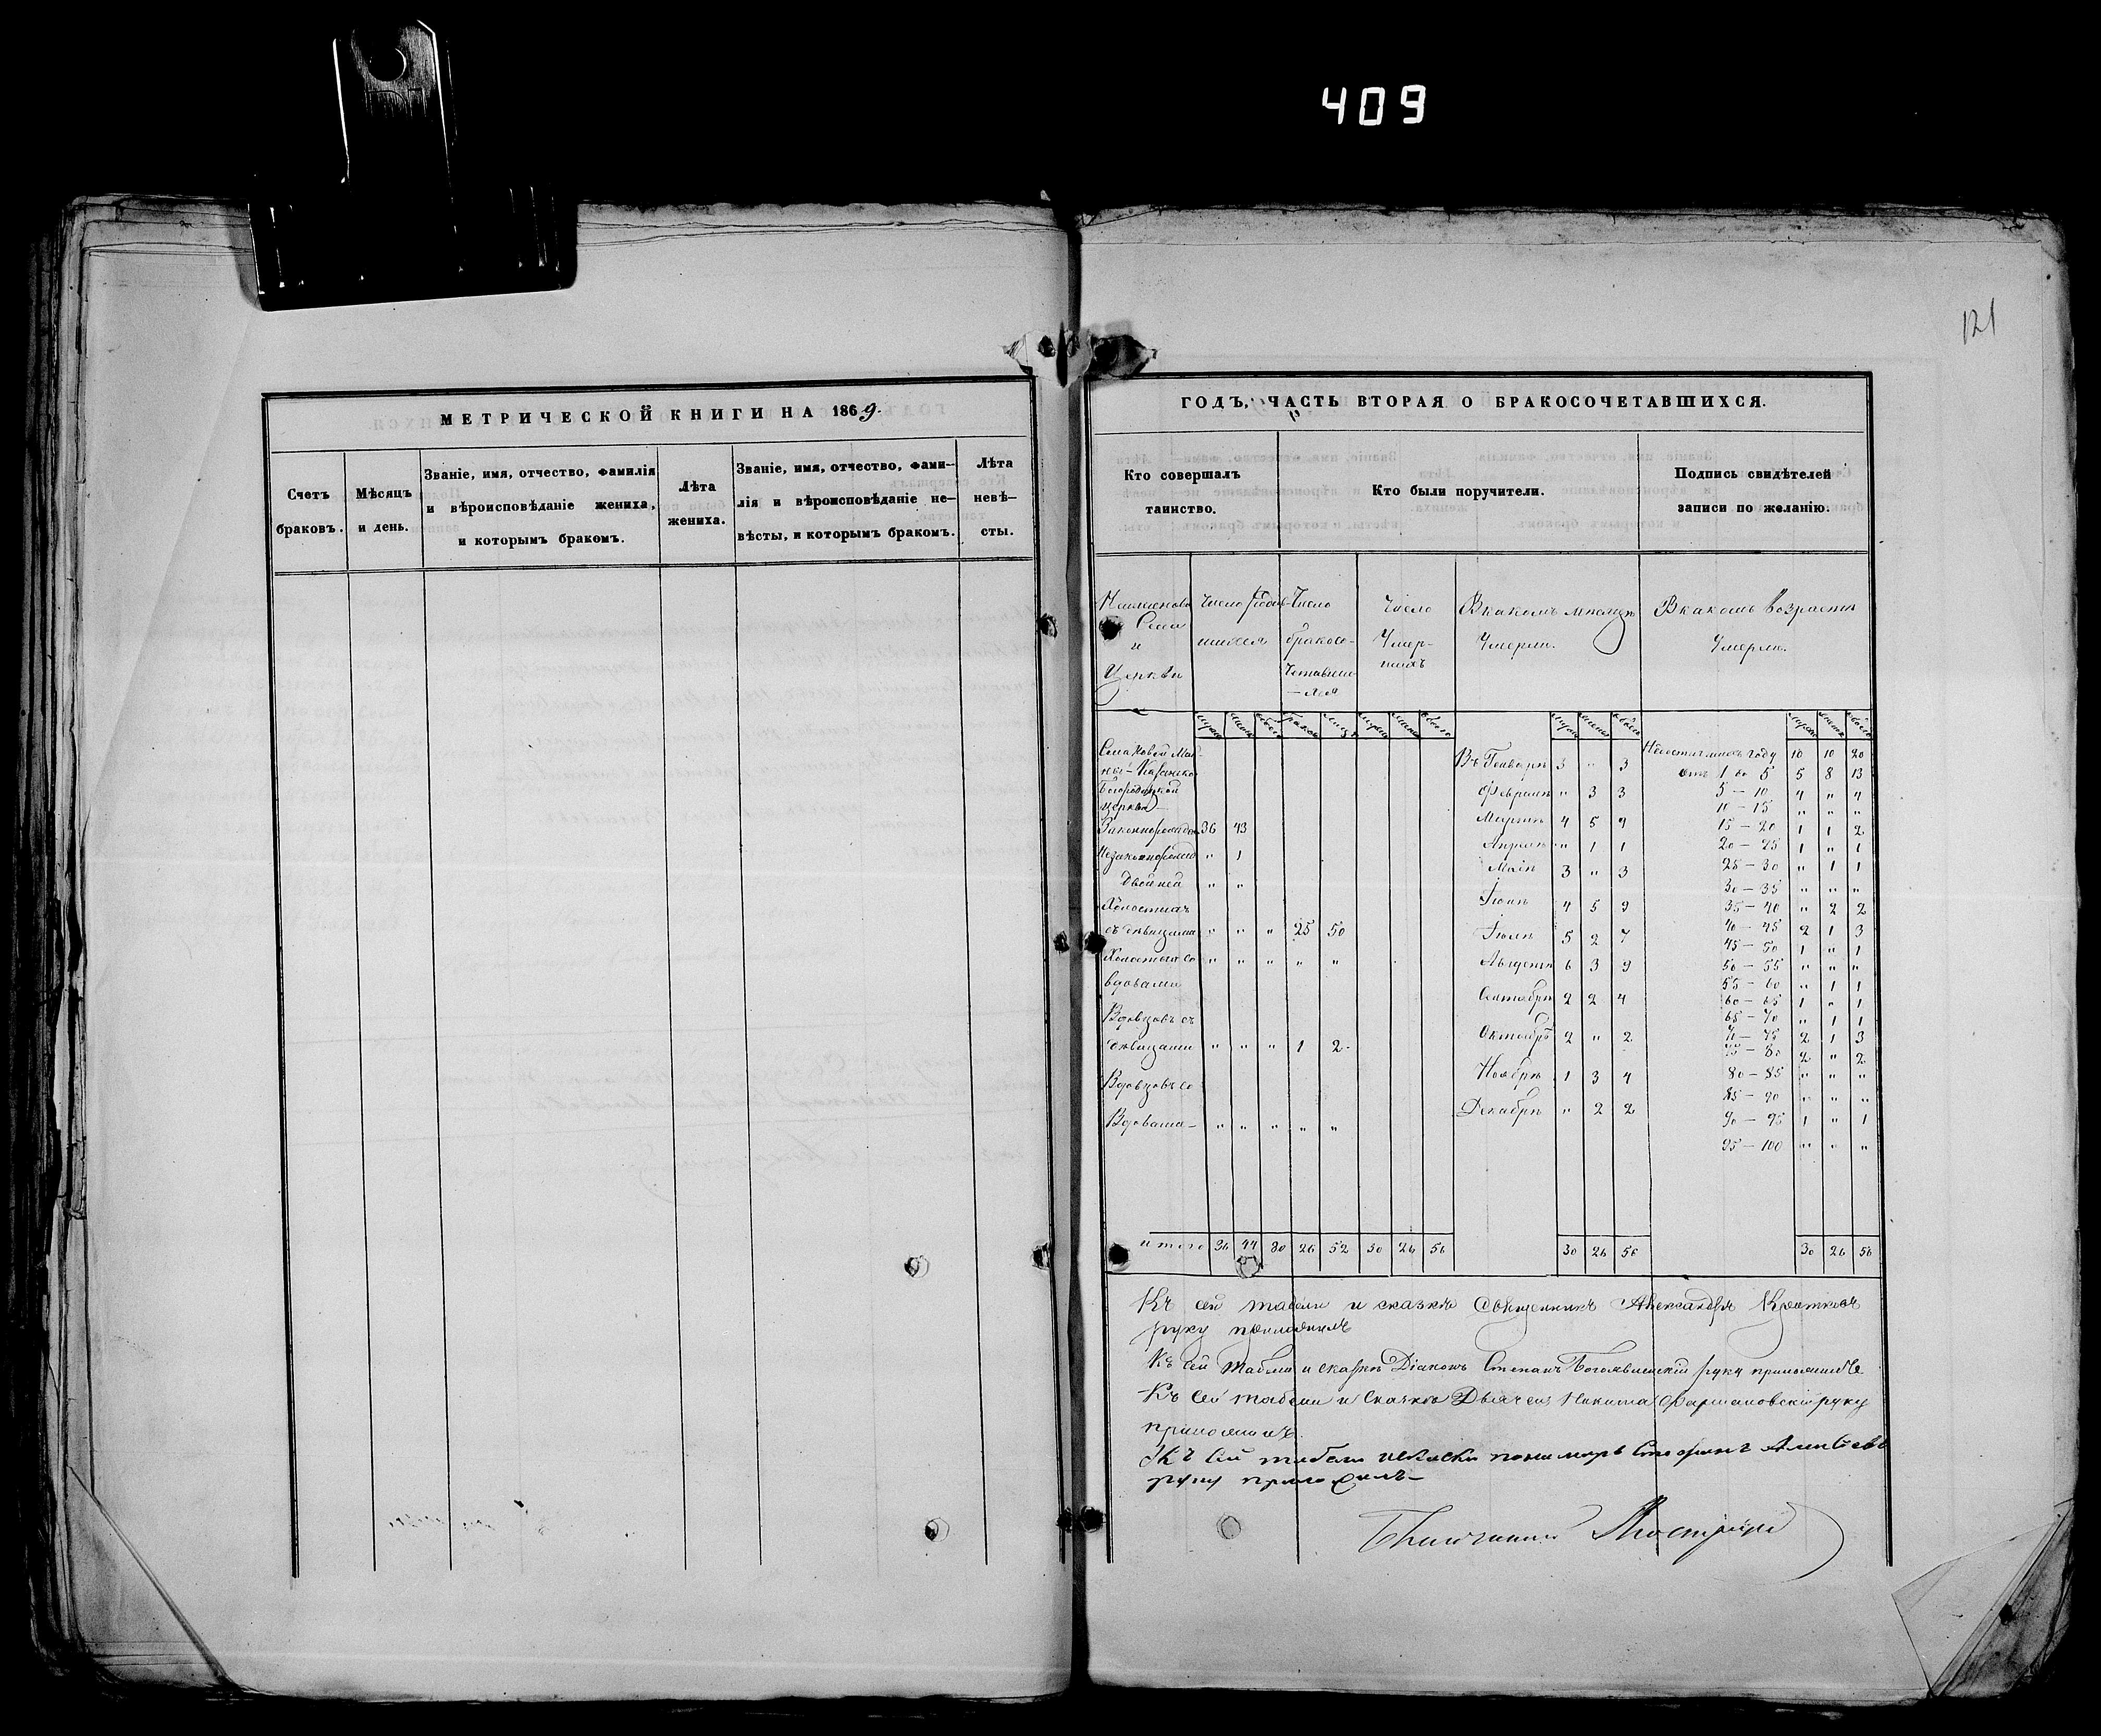 409
121
МЕТРИЧЕСКОЙ КНИГИ НА 1869.
Счетъ
браковъ.
Мѣсяцъ
и день.
Званіе, имя, отчество, фамилія
и вѣроисповѣданіе жениха,
и которымъ бракомъ.
Лѣта
жениха.
Званіе, имя, отчество, фами-
лія и вѣроисповѣданіе не-
вѣсты, и которымъ бракомъ.
Лѣта
невѣ-
сты.
ГОДЪ, ЧАСТЬ ВТОРАЯ О БРАКОСОЧЕТАВШИХСЯ.
Кто совершалъ
таинство.
Кто были поручители.
Подпись свидѣтелей
записи по желанію.
Села
и
Церкви
Число родив-
шихся
Число
бракосо-
четавши-
Число
Умер-
шихъ
Въ какомъ мѣсяцѣ
Умерли.
Въ какомъ возрастѣ
Умерли.
Казанско
Богородицкой
церкви
Законнорожден 36 43
Незаконнорожд " 1
Двойней " "
Холостыхъ
съ дѣвицами " " " 25 50
Холостыхъ со " " " " "
вдовами
Вдовцовъ съ
дѣвицами " " " 1 2
Вдовцовъ со
Вдовами " " " " "
Въ Генварѣ 3 " 3
Февралѣ " 3 3
Мартѣ 4 5 9
Апрѣлѣ " 1 1
Маѣ 3 " 3
Іюнѣ 4 5 9
Іюлѣ 5 2 7
Августѣ 6 3 9
Сентябрѣ 2 2 4
Октябрѣ 2 " 2
Ноябрѣ 1 3 4
Декабрѣ " 2 2
году 10 10 20
отъ 1 до 5 5 8 13
5 — 10 4 " 4
10 — 15 " " "
15 — 20 1 1 2
20 — 25 1 " 1
25 — 30 " 1 1
30 — 35 " " "
35 — 40 " 2 2
40 — 45 2 1 3
45 — 50 1 " 1
50 — 55 " " "
55 — 60 " 1 1
60 — 65 1 " 1
65 — 70 " 1 1
70 — 75 2 1 3
75 — 80 2 " 2
80 — 85 " " "
85 — 90 " " "
90 — 95 1 " 1
95 — 100 " " "
итого 36 44 80 26 52 30 26 56 30 26 56 30 26 56
Къ сей табели и сказкѣ Священникъ Александръ
руку приложилъ
Къ сей табели и сказкѣ Діаконъ Степанъ Богоявленскій руку приложилъ
Къ сей табели и сказкѣ Дьячекъ Никита руку
приложилъ.
Къ сей табели пономарь
руку приложилъ